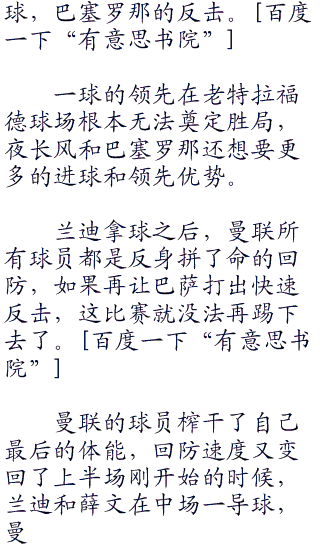 球，巴塞罗那的反击。[百度
一下“有意思书院”]
一球的领先在老特拉福
德球场根本无法奠定胜局，
夜长风和巴塞罗那还想要更
多的进球和领先优势。
兰迪拿球之后，曼联所
有球员都是反身拼了命的回
防，如果再让巴萨打出快速
反击，这比赛就没法再踢下
去了。[百度一下“有意思书
院”]
曼联的球员榨干了自己
最后的体能，回防速度又变
回了上半场刚开始的时候，
兰迪和薛文在中场一导球，
曼